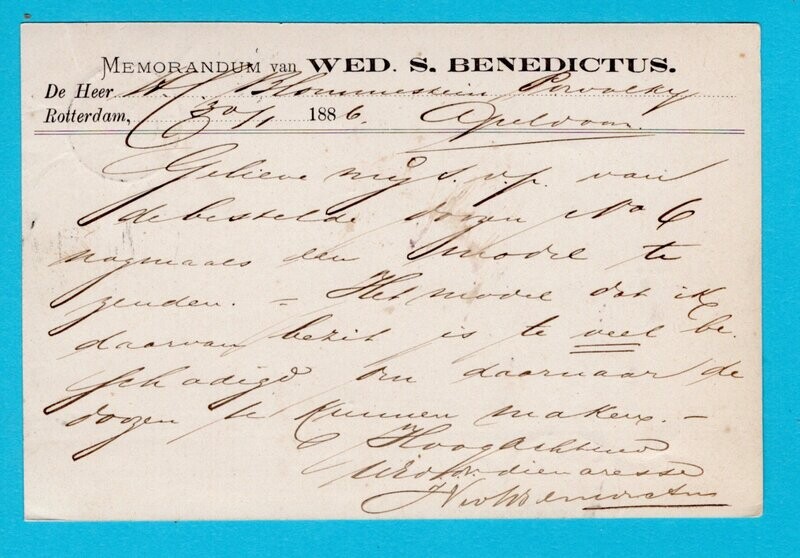 MEMORANDUM van WED. S. BENEDICTUS.
De Heer Blommestein
Rotterdam, 30/1 1886. Apeldoorn
Gelieve mij s.v.p. van
de bestelde dozen No 6
nogmaals een model te
zenden. – Het model dat ik
daarvan bezit is te veel be-
schadigd om daarnaar de
dozen te kunnen maken. –
Hoogachtend
dienaresse
Benedictus